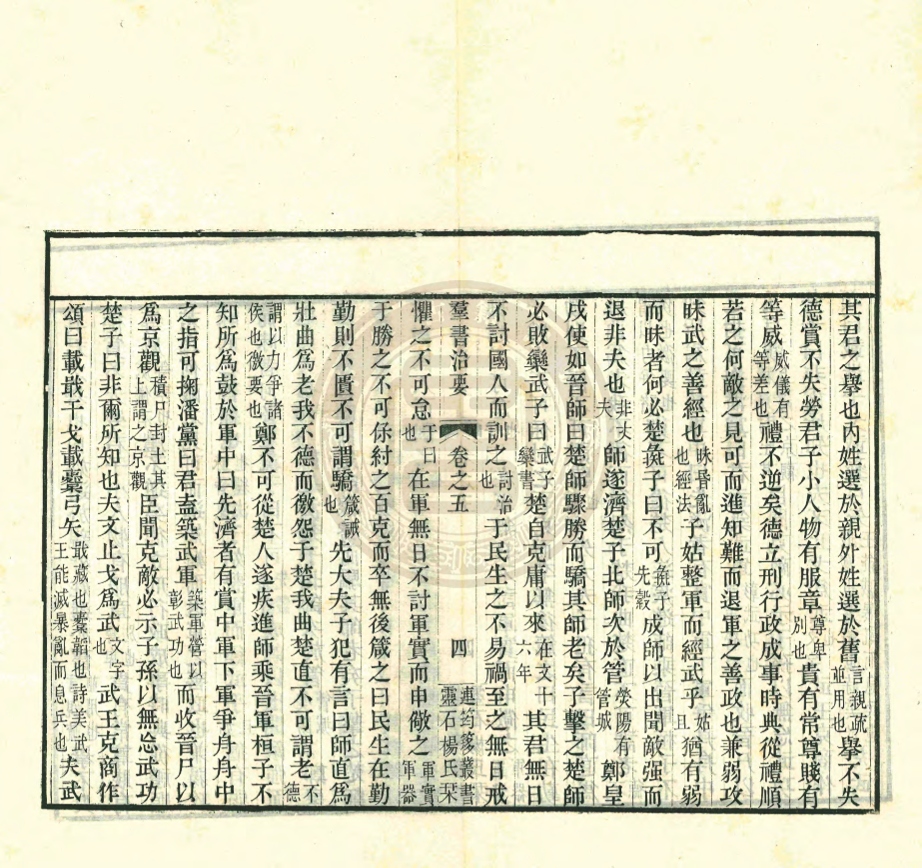 其君之舉也內姓選於親外姓選於舊言親疏並用也舉不失
德賞不失勞君子小人物有服章尊卑別也貴有常尊賤有
等威威儀有等差也禮不逆矣德立刑行政成事時典從禮順
若之何敵之見可而進知難而退軍之善政也兼弱攻
昧武之善經也昧昬亂也經法子姑整軍而經武乎姑且猶有弱
而昧者何必楚彘子曰不可彘子先縠成師以出聞敵强而
退非夫也非丈夫師遂濟楚子北師次於管滎陽有管城鄭皇
戌使如晉師曰楚師驟勝而驕其師老矣子擊之楚師
必敗欒武子曰武子欒書楚自克庸以來在文十六年其君無日
不討國人而訓之討治也于民生之不易禍至之無日戒
羣書治要 卷之五 四 連筠簃叢書靈石楊氏栞
懼之不可怠于曰也在軍無日不討軍實而申儆之軍實軍器
于勝之不可保紂之百克而卒無後箴之曰民生在勤
勤則不匱不可謂驕箴誡也先大夫子犯有言曰師直爲
壯曲爲老我不德而徼怨于楚我曲楚直不可謂老不德
謂以力爭諸侯也徼要也鄭不可從楚人遂疾進師乘晉軍桓子不
知所爲鼓於軍中曰先濟者有賞中軍下軍爭舟舟中
之指可掬潘黨曰君盍築武軍築軍營以彰武功也而收晉尸以
爲京觀積尸封土其上謂之京觀臣聞克敵必示子孫以無忘武功
楚子曰非爾所知也夫文止戈爲武文字武王克商作
頌曰載戢干戈載櫜弓矢戢藏也櫜韜也詩美武王能滅暴亂而息兵也夫武